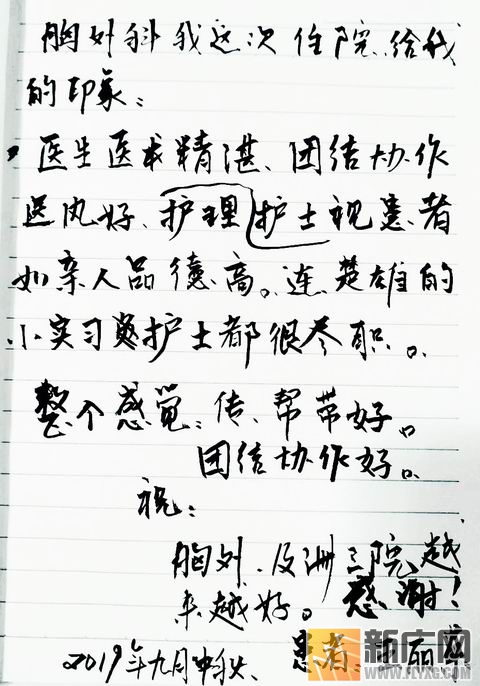 胸外科我这次住院给我
的印象:
医生医术精湛、团结协作
医风好、护理护士视患者
如亲人品德高。连楚雄的
小实习护士都很尽职。
整个感觉:传、帮带好。
团结协作好。
祝:
胸外、及洲三院越
来越好。感谢!
患者:
2019年九月中秋
新广网
WWW.CLYXG.COM